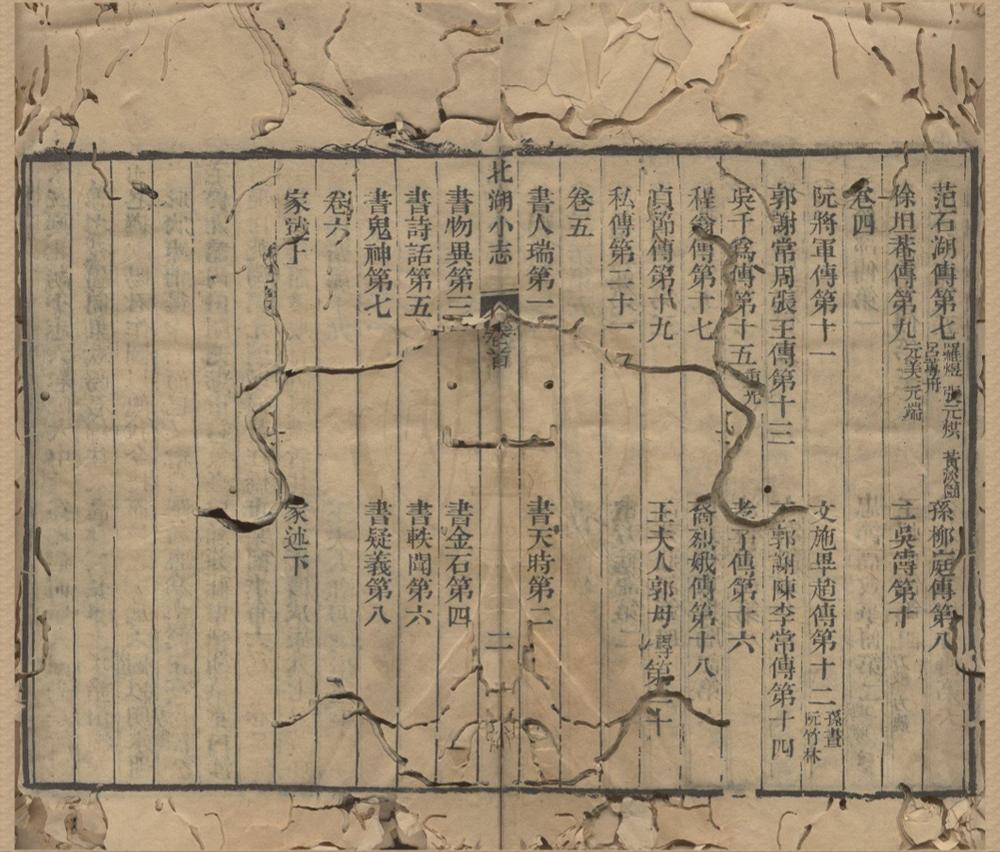 范石湖傳第七 羅煜 張元烘 黃淡園 孫柳庭傳第八
徐坦菴傳第九 元美 元端 二吳傳第十
卷四
阮將軍傳第十一 文施畢趙傳第十二 孫晝 阮竹林
郭謝常周張王傳第十三 郭謝陳李常傳第十四
吳千爲傳第十五 孝子傳第十六
程翁傳第十七 裔烈娥傳第十八
貞節傳第十九 王夫人郭母傳第二十
私傳第二十一
卷五
書人瑞第一 書天時第二
北湖小志 卷首 二
書物異第三 書金石第四
書詩話第五 書軼聞第六
書鬼神第七 書疑義第八
卷六
家述上 家述下